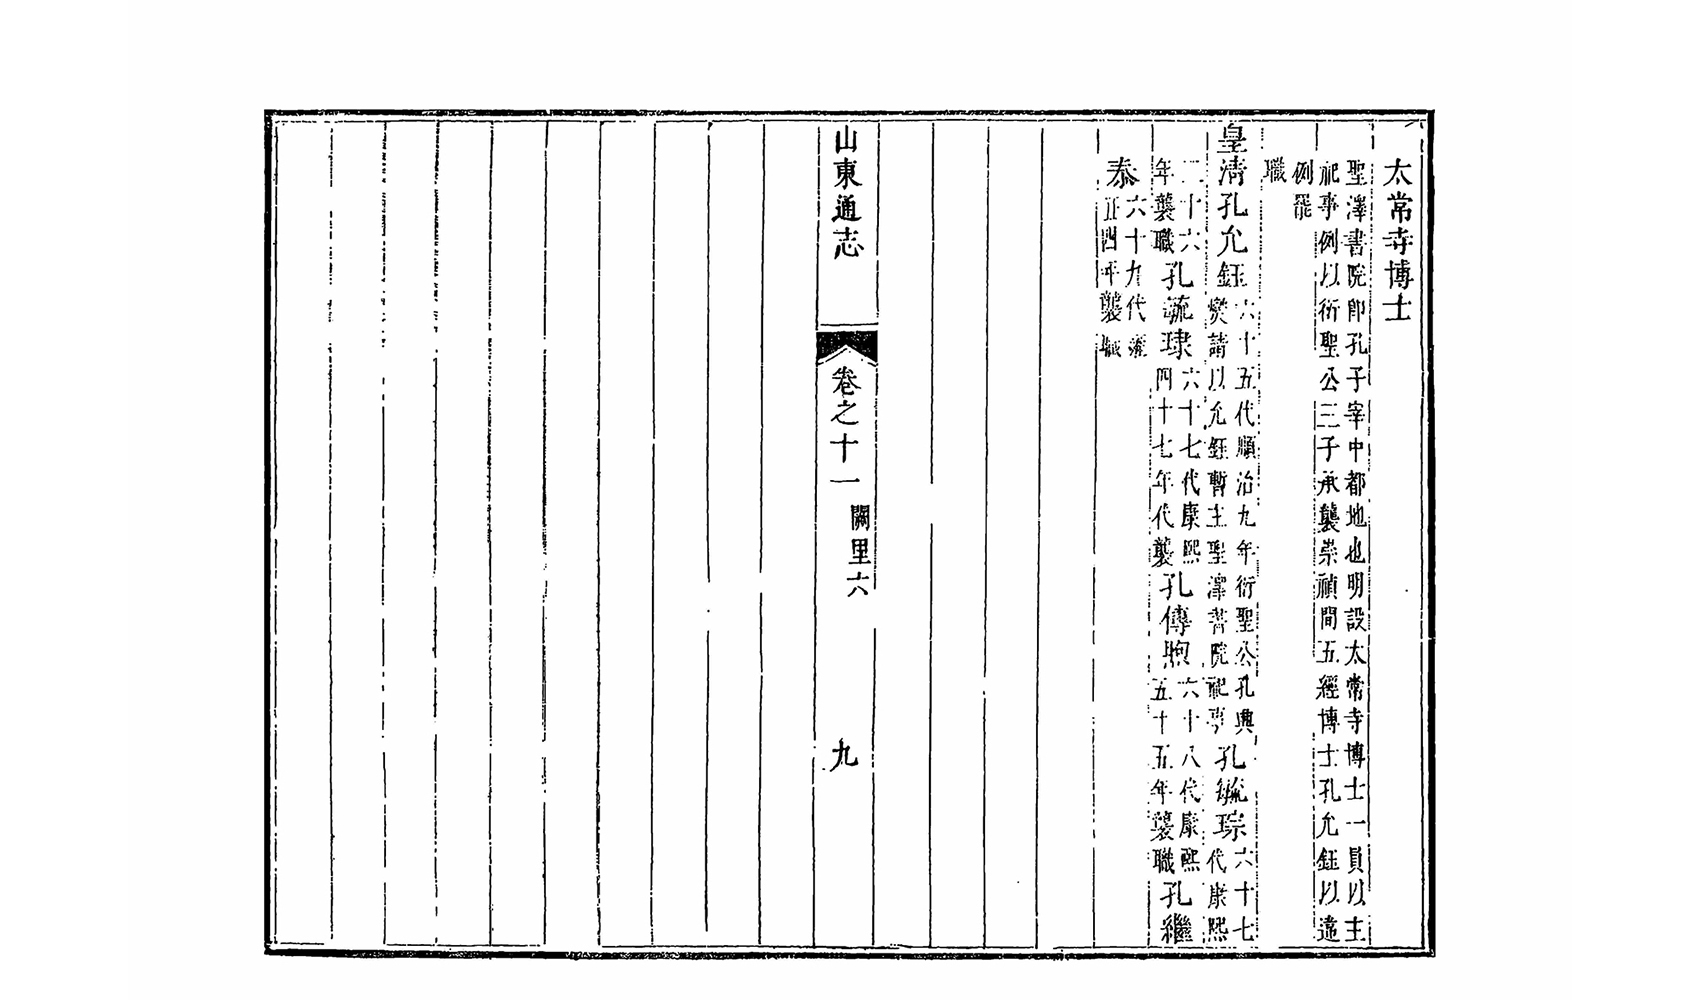 太常寺博士
聖澤書院即孔子宰中都地也明設太常寺博士一員以主
祀事例以衍聖公三子承襲崇禎間五經博士孔允鈺以違
例罷
職
皇清孔允鈺六十五代順治九年衍聖公孔興燮請以允鈺暫主聖澤書院祀事孔毓琮六十七代康熙
二十六年襲職孔毓琜六十七代康熙四十七年代襲孔傳煦六十八代康熙五十五年襲職孔繼
泰六十九代雍正四年襲職
山東通志 卷之十一 闕里六 九